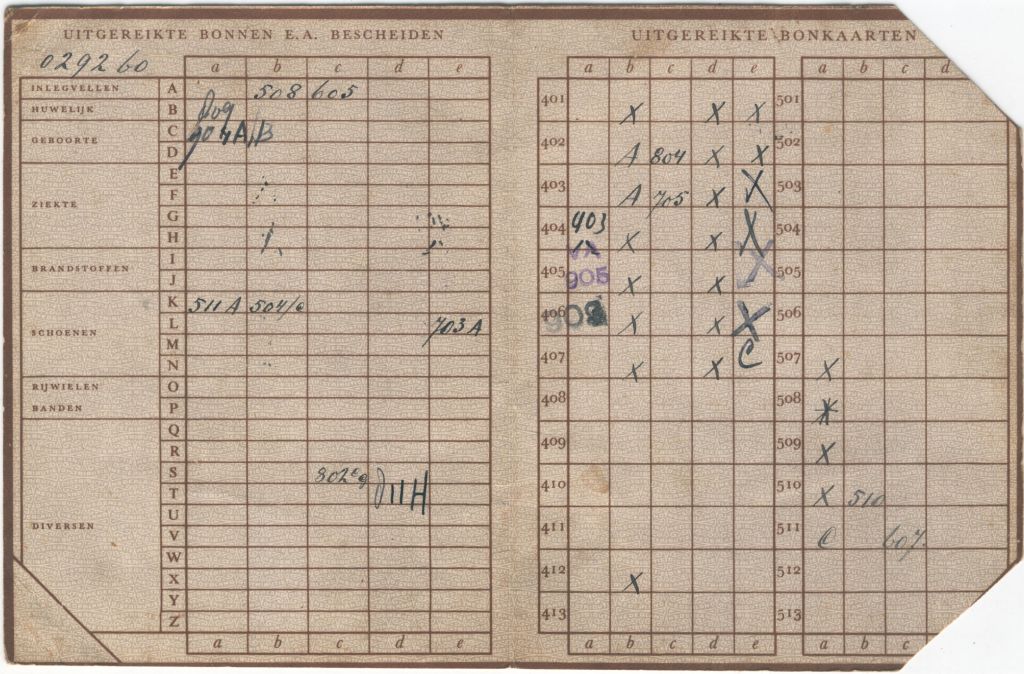 UITGEREIKTE BONNEN E.A. BESCHEIDEN
029260
a b c d e
INLEGVELLEN A 508 605
HUWELIJK B
GEBOORTE C 904 A/B
D
E
ZIEKTE F
G
H
BRANDSTOFFEN I
J
K 511 A 504/c
SCHOENEN L 703 A
M
N
RIJWIELEN O
BANDEN P
Q
R
S 802
T 11H
DIVERSEN U
V
W
X
Y
Z
a b c d e
UITGEREIKTE BONKAARTEN
a b c d e a b c d
401 X X X 501
402 A 804 X X 502
403 A 705 X X 503
404 403 X X X 504
405 905 X X X 505
406 908 X X X 506
407 X X C 507 X
408 508 X
409 509 X
410 510 X 510
411 511 C 607
412 X 512
413 513
a b c d e a b c